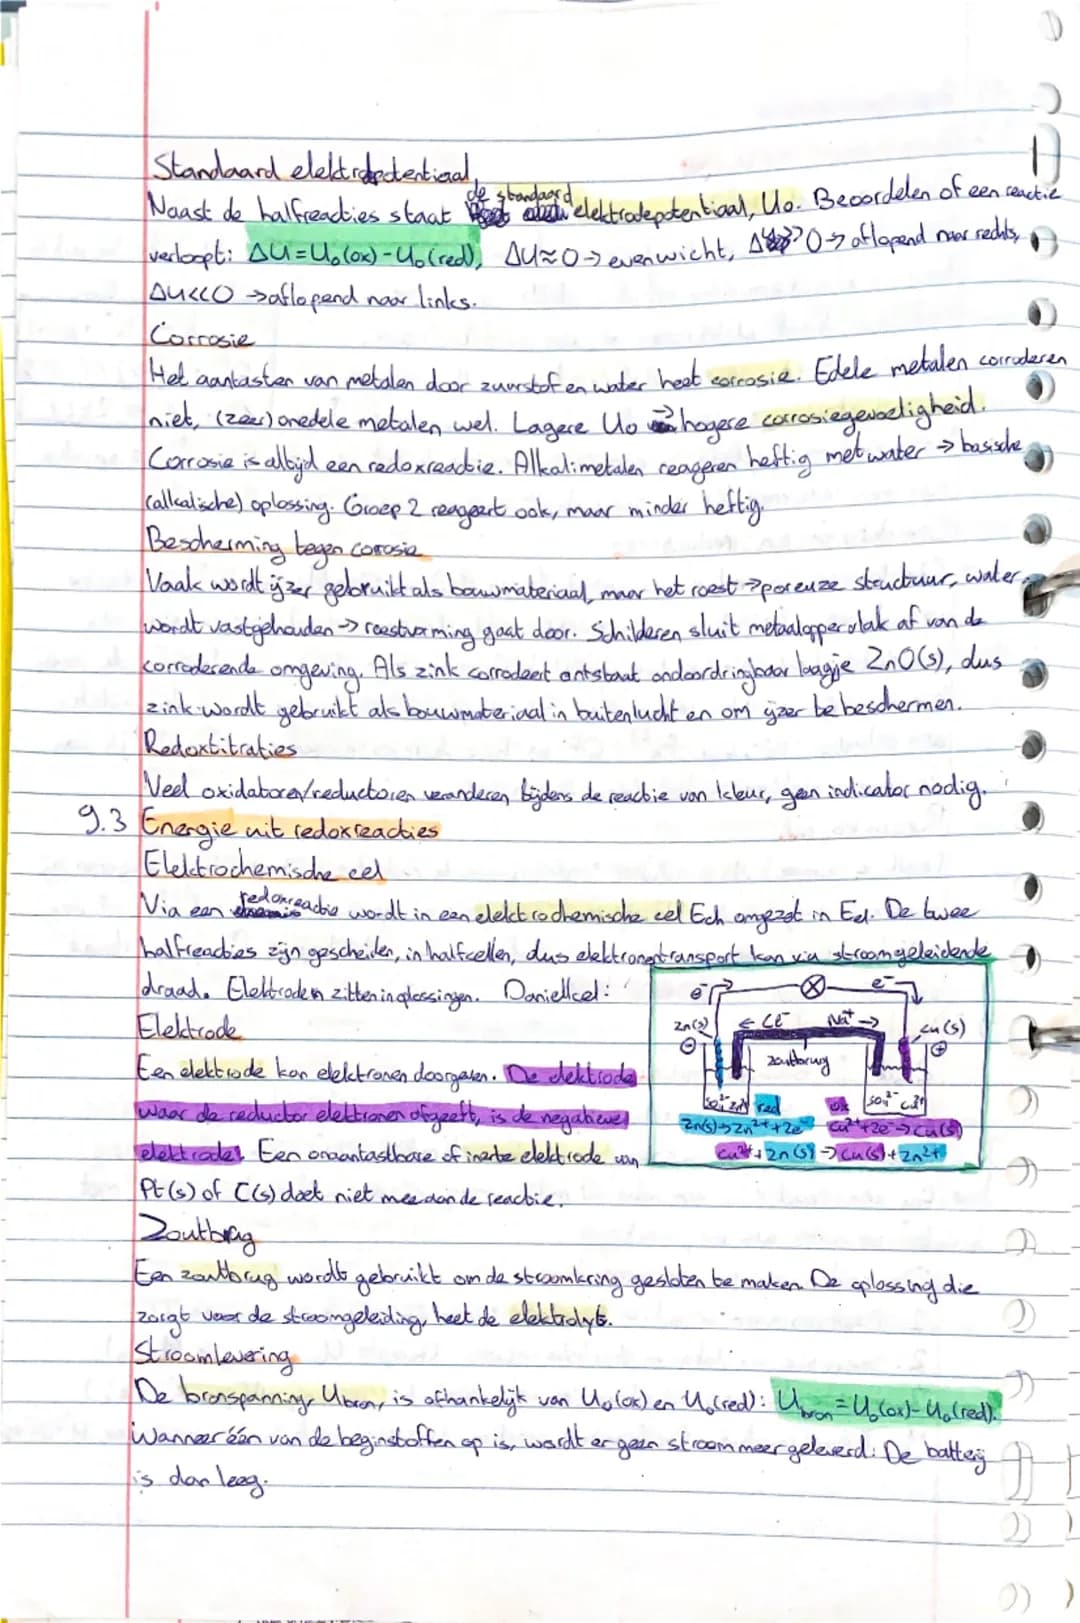 Standaard elektrodepotentiaal
Naast de halfreacties staat de standaard elektrodepotentiaal, U₀. Beoordelen of een reactie
verloopt: ΔU=U₀(ox)-U₀(red), ΔU≈0→evenwicht, ΔU>>0→aflopend naar rechts,
ΔU<<0→aflopend naar links.
Corrosie
Het aantasten van metalen door zuurstof en water heet corrosie. Edele metalen corroderen
niet, (zeer) onedele metalen wel. Lagere U₀ → hogere corrosiegevoeligheid.
Corrosie is altijd een redoxreactie. Alkalimetalen reageren heftig met water → basische
(alkalische) oplossing. Groep 2 reageert ook, maar minder heftig.
Bescherming tegen corrosie
Vaak wordt ijzer gebruikt als bouwmateriaal, maar het roest → poreuze structuur, water
wordt vastgehouden → roestvorming gaat door. Schilderen sluit metaaloppervlak af van de
corroderende omgeving. Als zink corrodeert ontstaat ondoordringbaar laagje ZnO(s), dus
zink wordt gebruikt als bouwmateriaal in buitenlucht en om ijzer te beschermen.
Redoxtitraties
Veel oxidatoren/reductoren veranderen tijdens de reactie van kleur, geen indicator nodig.
9.3 Energie uit redoxreacties
Elektrochemische cel
Via een redoxreactie wordt in een elektrochemische cel Ech omgezet in Eel. De twee
halfreacties zijn gescheiden, in halfcellen, dus elektronentransport kan via stroomgeleidende
draad. Elektroden zitten in oplossingen. Daniellcel:
e⁻ e⁻
Zn(s) ← Cl⁻ Na⁺ → Cu(s)
⊖ zoutbrug ⊕
SO₄²⁻ Zn²⁺ red ox SO₄²⁻ Cu²⁺
Zn(s)→Zn²⁺+2e⁻ Cu²⁺+2e⁻→Cu(s)
Cu²⁺+Zn(s)→Cu(s)+Zn²⁺
Elektrode
Een elektrode kan elektronen doorgeven. De elektrode
waar de reductor elektronen afgeeft, is de negatieve
elektrode. Een onaantastbare of inerte elektrode van
Pt(s) of C(s) doet niet mee aan de reactie.
Zoutbrug
Een zoutbrug wordt gebruikt om de stroomkring gesloten te maken. De oplossing die
zorgt voor de stroomgeleiding, heet de elektrolyt.
Stroomlevering
De bronspanning, Ubron, is afhankelijk van U₀(ox) en U₀(red): Ubron=U₀(ox)-U₀(red).
Wanneer één van de beginstoffen op is, wordt er geen stroom meer geleverd: De batterij
is dan leeg.